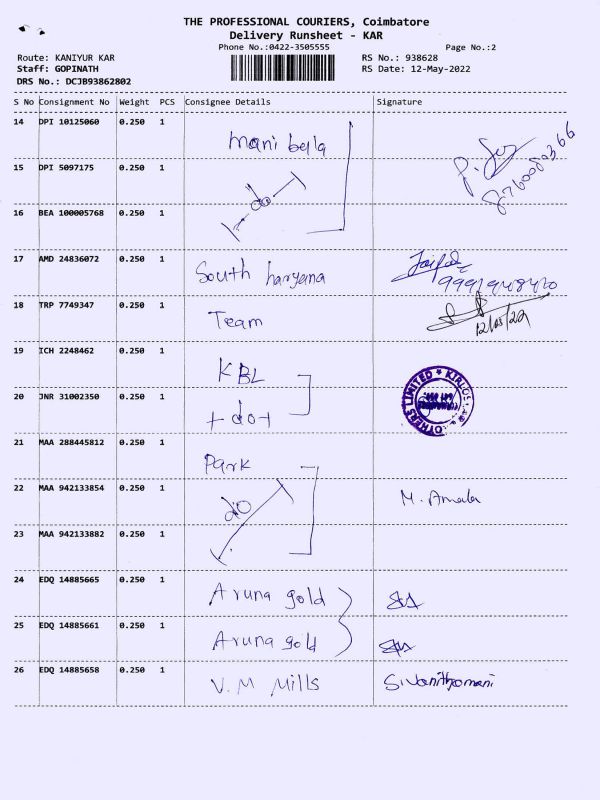 THE PROFESSIONAL COURIERS, Coimbatore
Delivery Runsheet - KAR
Phone No.:0422-3505555
Page No.:2
Route: KANIYUR KAR
RS No.: 938628
Staff: GOPINATH
RS Date: 12-May-2022
DRS No.: DCJB93862802
S No Consignment No Weight PCS Consignee Details Signature
14 DPI 10125060 0.250 1 Mani bella
15 DPI 5097175 0.250 1 do
16 BEA 100005768 0.250 1
17 AMD 24836072 0.250 1 South haryana
18 TRP 7749347 0.250 1 Team 12/05/22
19 ICH 2248462 0.250 1 KBL
20 JNR 31002350 0.250 1 do
21 MAA 288445812 0.250 1 Park
22 MAA 942133854 0.250 1 do M. Amala
23 MAA 942133882 0.250 1
24 EDQ 14885665 0.250 1 Aruna gold
25 EDQ 14885661 0.250 1 Aruna gold
26 EDQ 14885658 0.250 1 V.M Mills S.Vanithamani